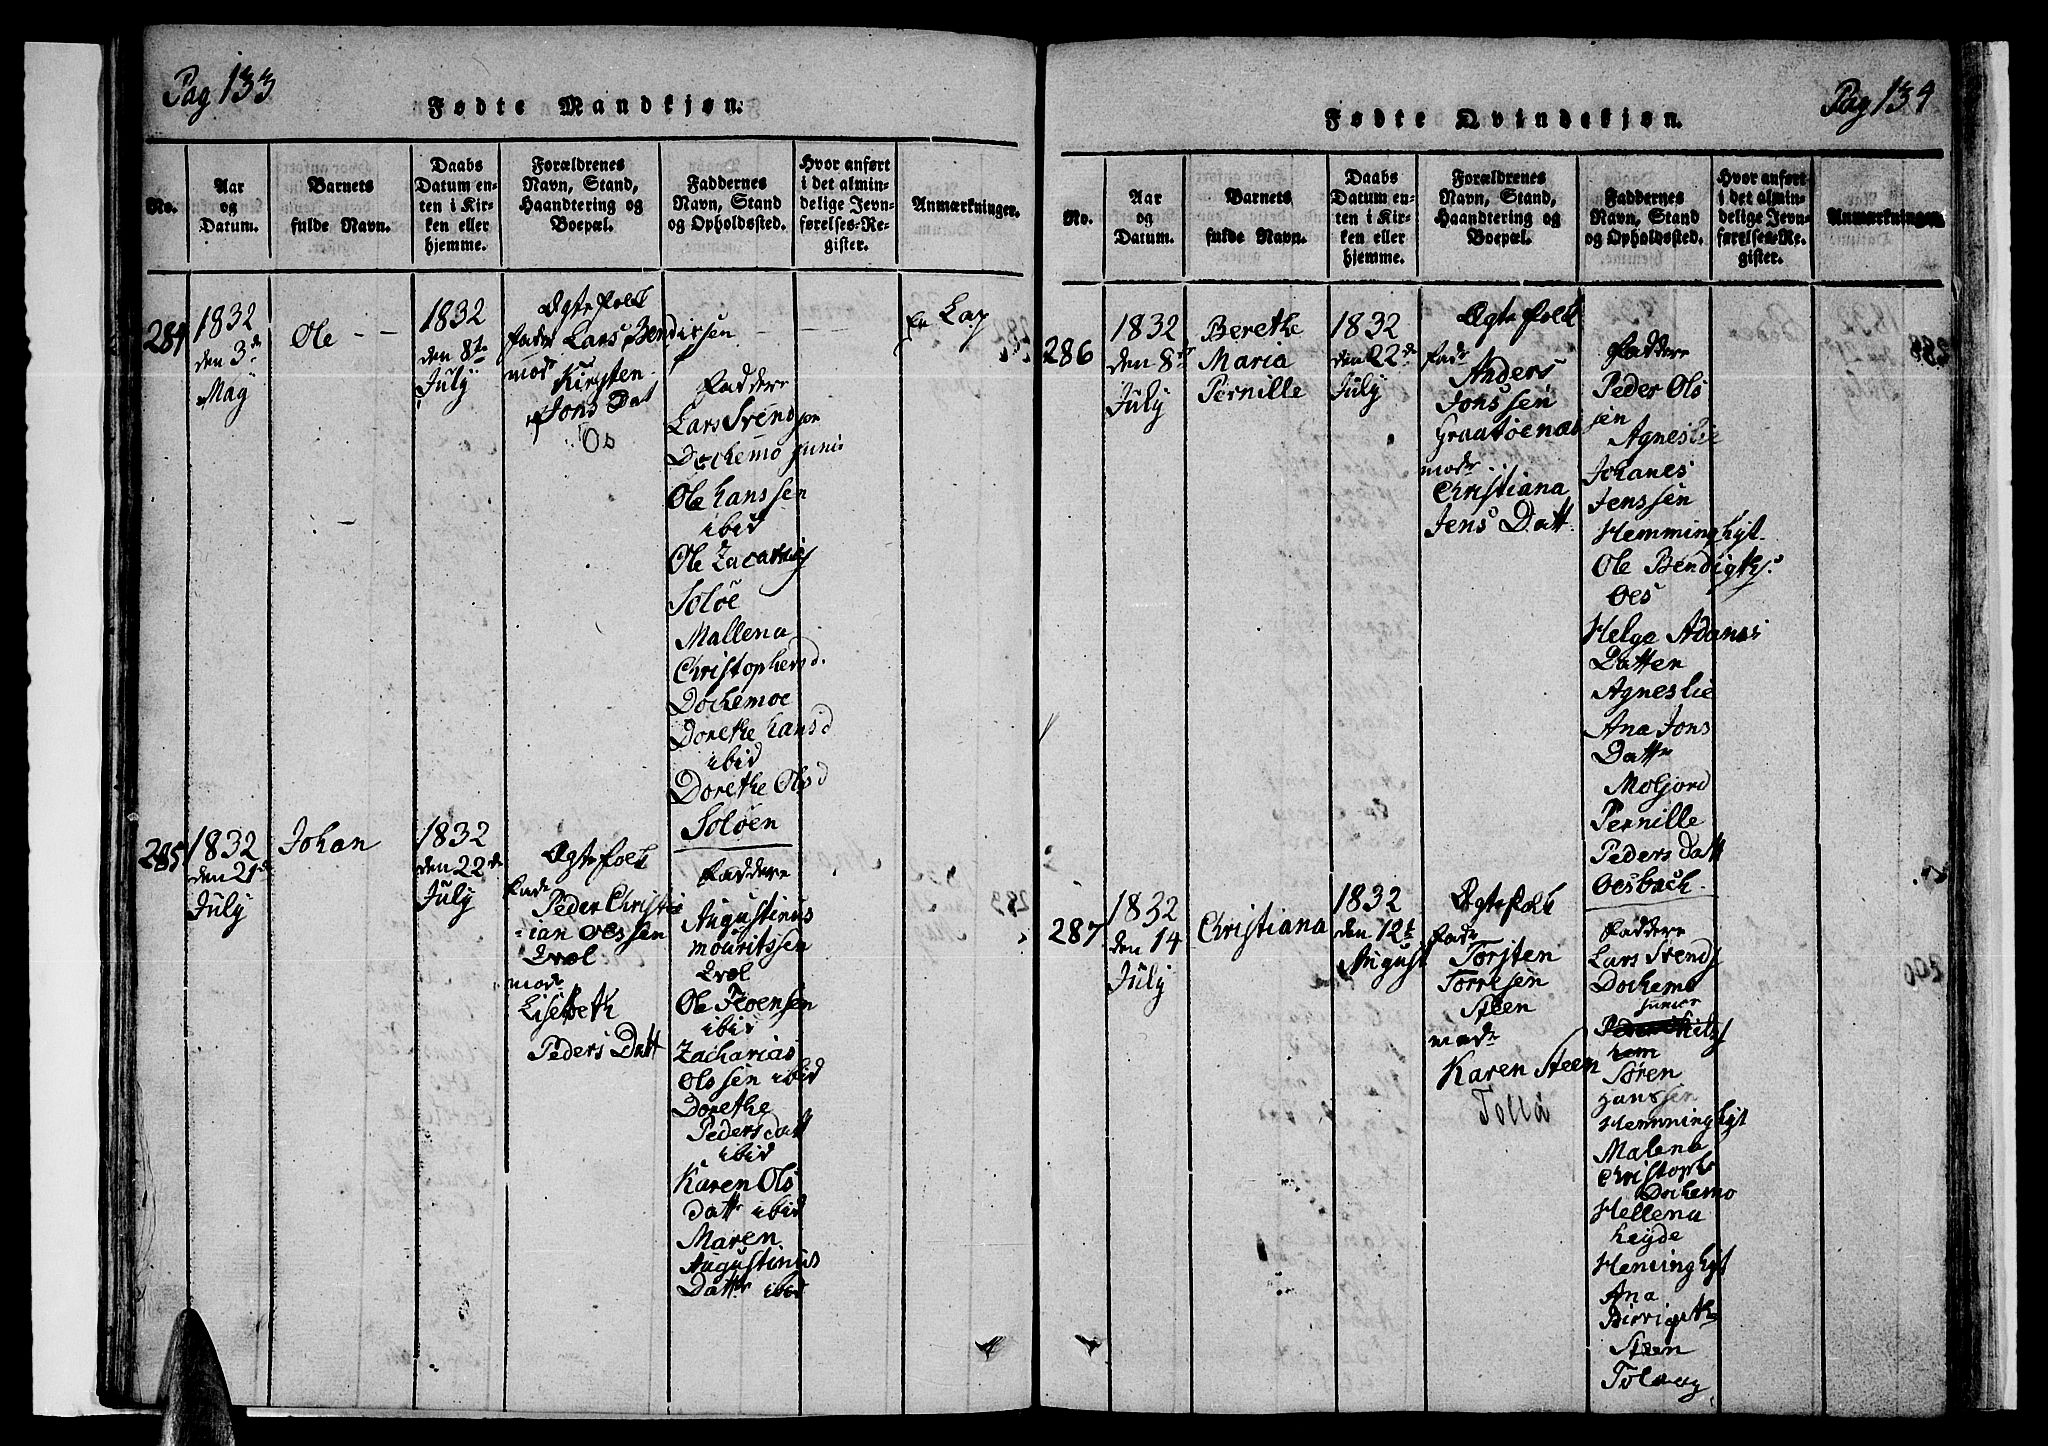 Pag 133
Fødte Mandkjøn.
No.
Aar
og
Datum.
Barnets
fulde Navn.
Daabs
Datum en-
ten i Kir-
ken eller
hjemme.
Forældrenes
Navn, Stand,
Haandtering og
Boepæl.
Faddernes
Navn, Stand
og Opholdssted.
Hvor anført
i det almin-
delige Jevn-
førelses-Re-
gister.
Anmærkninger.
284
1832
den 3de
May
Ole
1832
den 8te
July
Ægtefolk
Fadr Lars Bendixsen
modr
Kirsten
Jons Dat
Os
Faddere
Lars Svendsen
Dochemo junior
Ole hanssen
ibid
Ole Zacarias
Soløe
Mallena
Christophersd.
Dochemoe
Dorethe hansd
ibid
Dorethe Olsd
Soløen
Lap
285
1832
den 21de
July
Johan
1832
den 22de
July
Ægtefolk
Fadr
Peder Christi
ian Oessen
Evæl
modr
Lisebeth
Peders Datt
Faddere
Augustinus
mouritssen
Evæl
Ole Ivensen
ibid
Zacharias
Olssen ibid
Dorethe
Peders datt
ibid
Karen Ols
datt ibid
Maren
Augustinus
Datter ibid
Pag 134
Fødte Qvindekjøn.
No.
Aar
og
Datum.
Barnets
fulde Navn.
Daabs
Datum en-
ten i Kir-
ken eller
hjemme.
Forældrenes
Navn, Stand,
Haandtering og
Boepæl.
Faddernes
Navn, Stand
og Opholdssted.
Hvor anført
i det almin-
delige Jevn-
førelses-Re-
gister.
Anmærkninger.
286
1832
den 8de
July
Berethe
Maria
Pernille
1832
den 22de
July
Ægtefolk
Fadr
Anders
Jonssen
Graatøenæs
modr
Christiana
Jens Datt
Faddere
Peder Ols
sen
Agneslie
Johanes
Jenssen
Hemminghyt
Ole Bendigths.
Oes
Helge Adams
Datter
Agneslie
Ana Jons
Datter
Moljord
Pernille
Peders datt
Oesbach
287
1832
den 14
July
Christiana
1832
den 12te
August
Ægtefolk
Fadr
Torsten
Torresen
Steen
modr
Karen Steen
Tollå
Faddere
Lars Svends
Dochemo
junier
Søren
Hanssen
Hemminghyt
Malena
Christoph
Dochemo
Hellena
heyde
Heminghyt
Ana
Birrigth
Steen
Tolaag